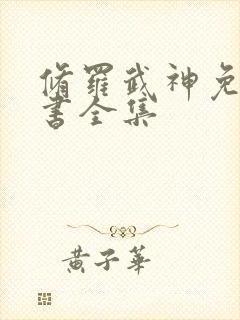 脩羅武神免
書全集
黃子華